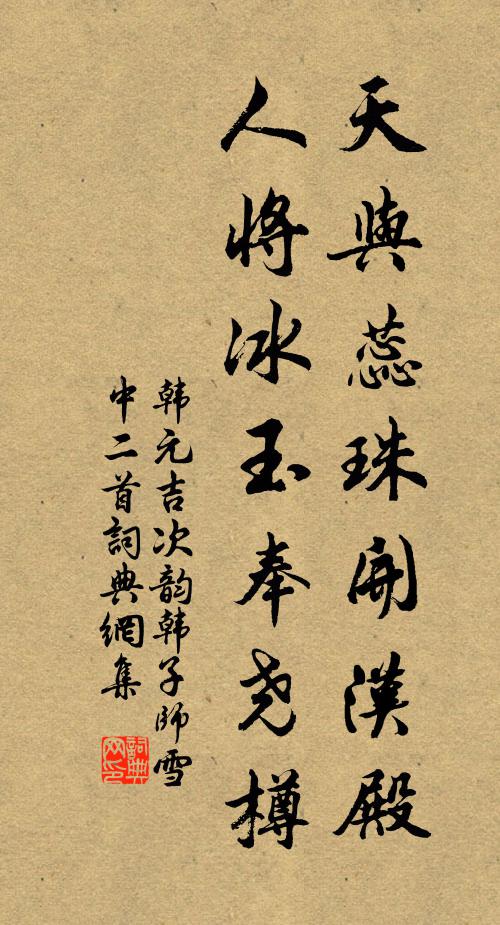 天與蕊珠開漢殿
人將冰玉奉尧樽
韩元吉次韵韩子師雪
中二首詞典網集
詞典
网印